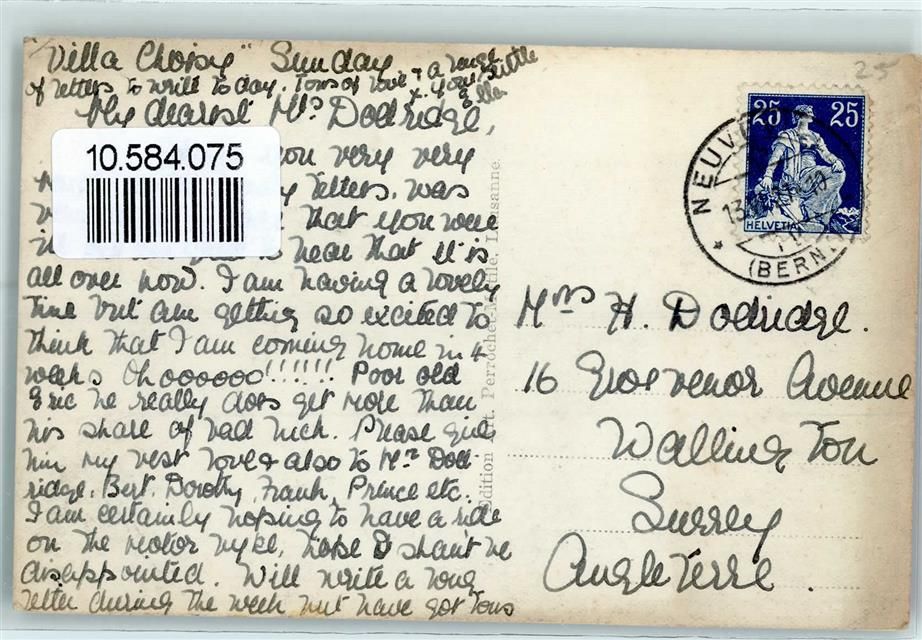 "Villa Choisy" Sunday
of letters to write to day. Tons of love & a
x your little
Ella
My dearest Mrs Dodridge,
10.584.075
you very very
letters, was
that you were
to hear that it is
all over now. I am having a lovely
time but am getting so excited to
think that I am coming home in 4
weeks Ohoooooo!!!!!!! Poor old
Eric he really does get more than
his share of bad luck. Please give
him my best love & also to Mr Dod-
ridge, Bert. Dorothy, Frank, Prince etc.
I am certainly hoping to have a ride
on the motor byke, hope I shan't be
disappointed. Will write a long
letter during the week but have got tons
Edition Perrochet Lausanne.
25
25 25
HELVETIA
NEUVE
(BERN)
Mrs H. Dodridge.
16 Grosvenor Avenue
Wallington
Surrey
Angleterre.